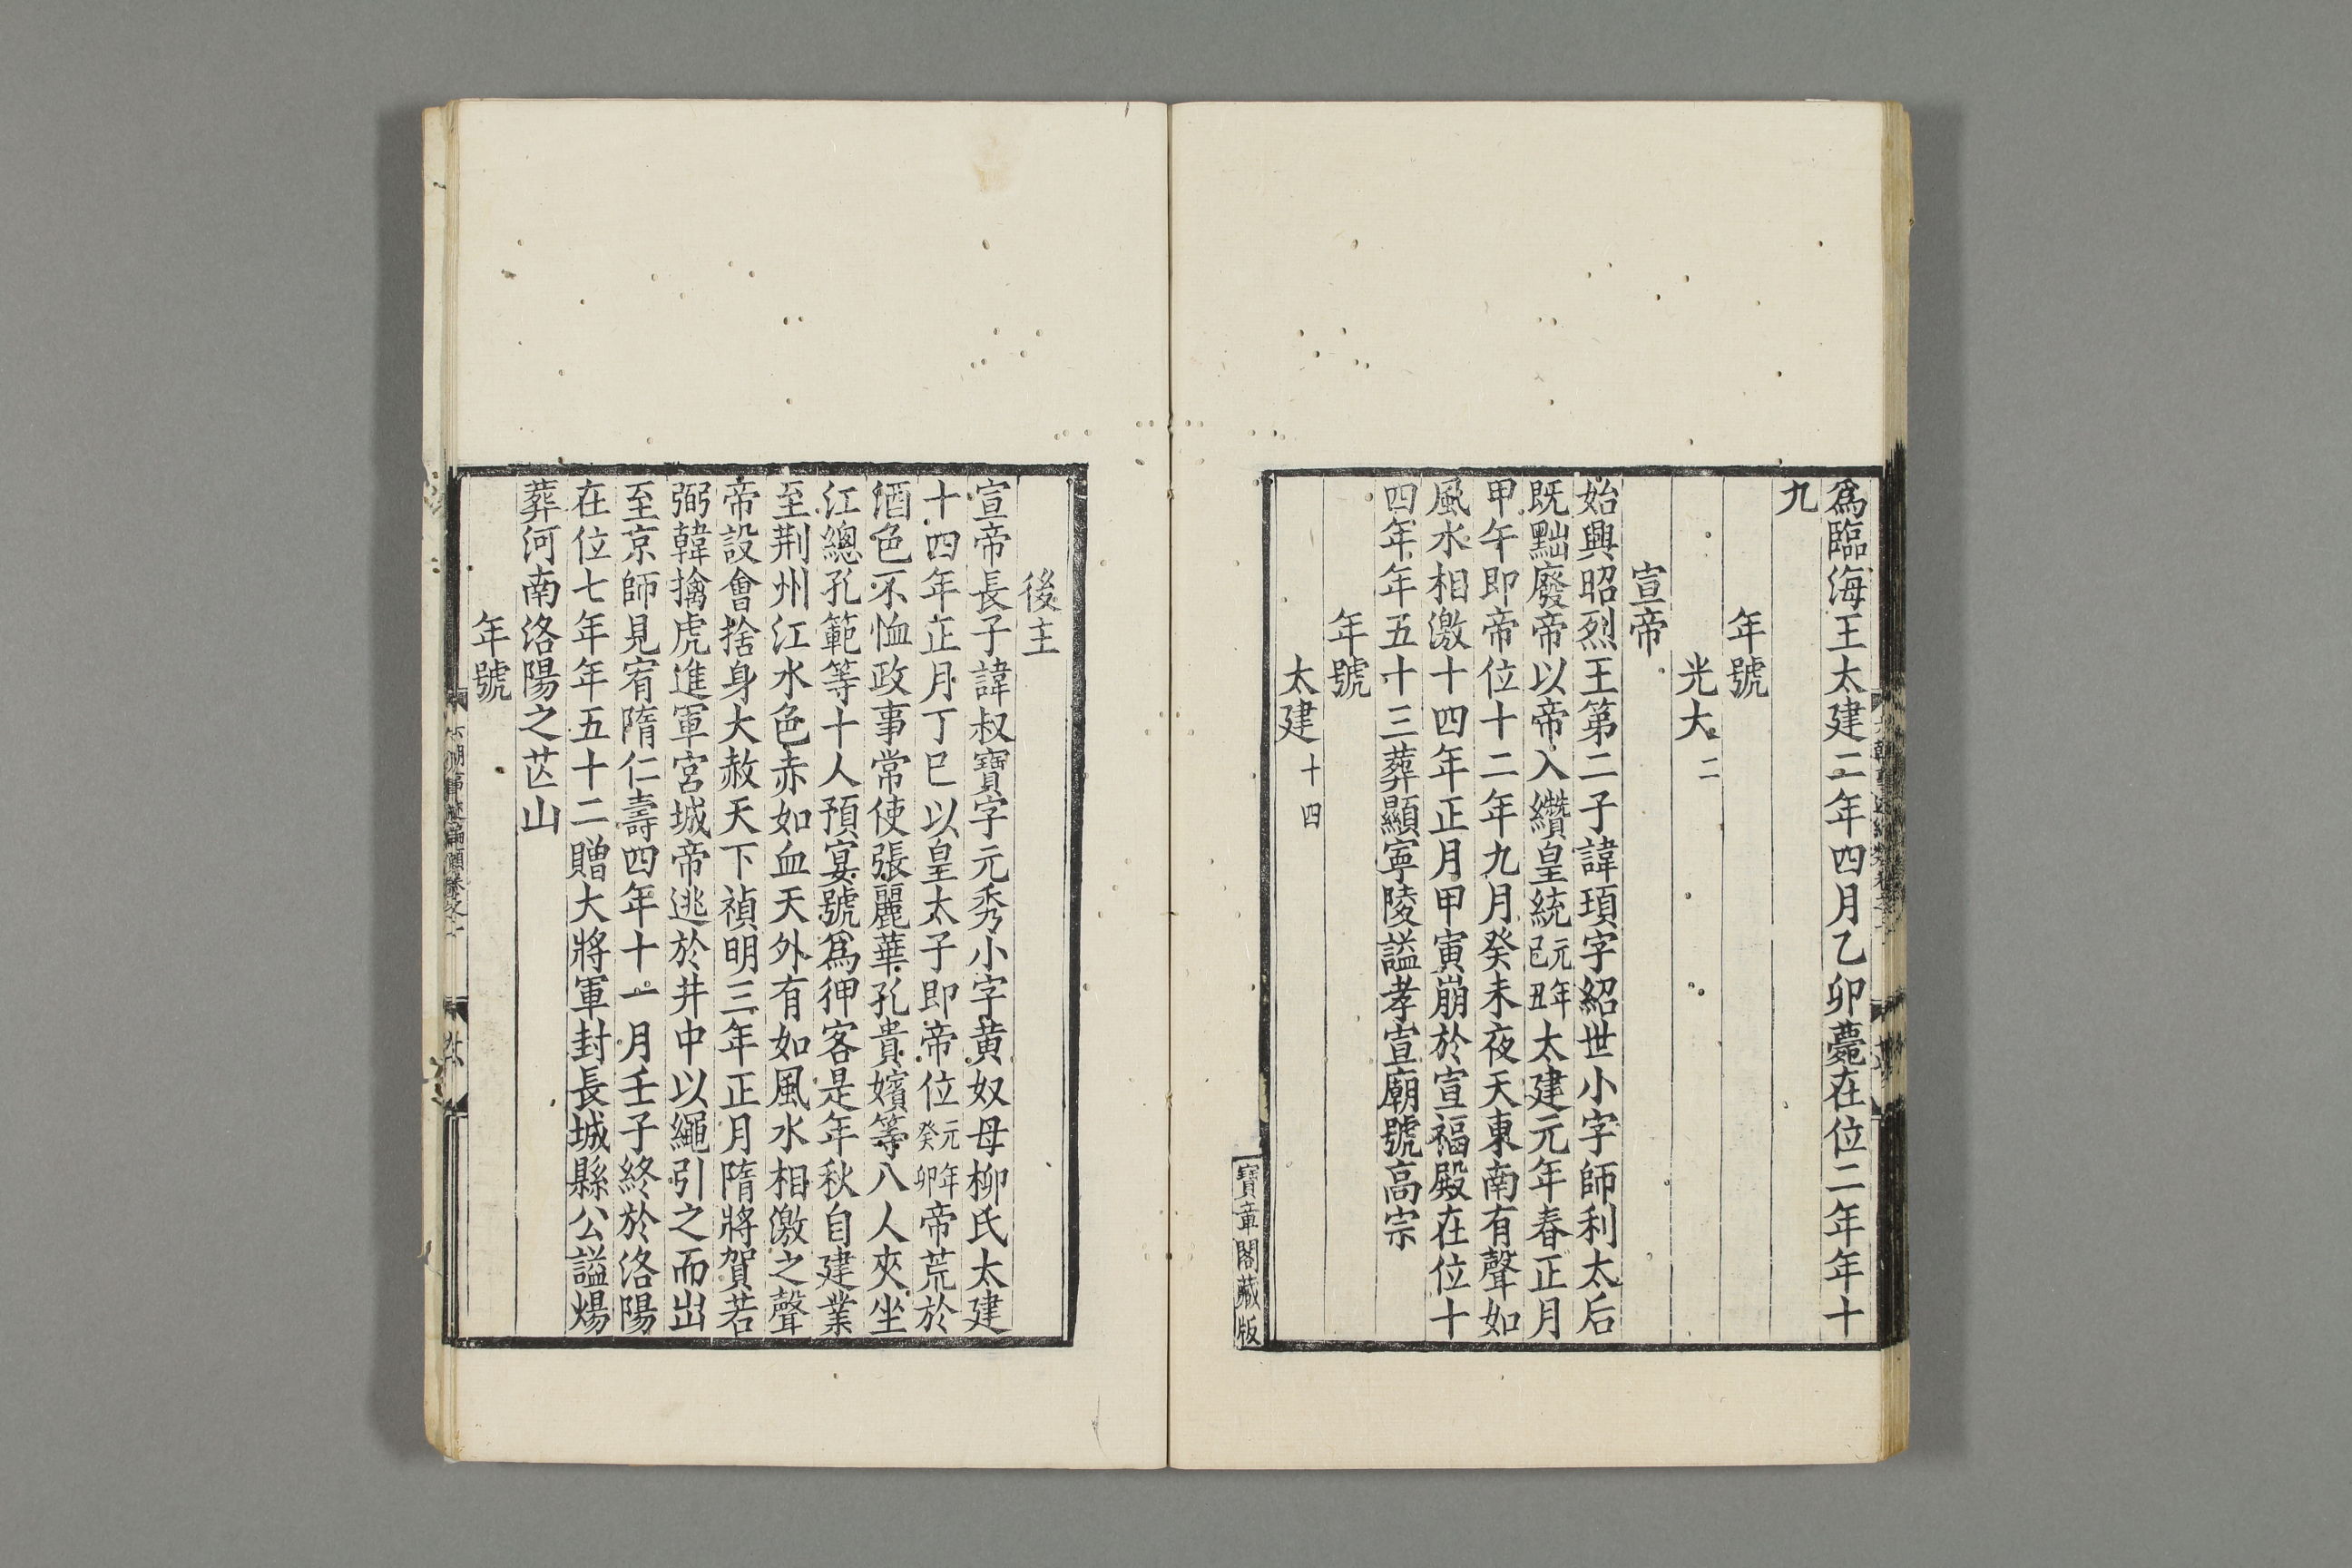 爲臨海王太建二年四月乙卯薨在位二年年十
九
年號
光大二
宣帝
始興昭烈王第二子諱頊字紹世小字師利太后
既黜廢帝以帝入纘皇統元年己丑太建元年春正月
甲午即帝位十二年九月癸未夜天東南有聲如
風水相激十四年正月甲寅崩於宣福殿在位十
四年年五十三葬顯寧陵謚孝宣廟號高宗
年號
太建十四
寶章閣藏版
後主
宣帝長子諱叔寶字元秀小字黄奴母柳氏太建
十四年正月丁巳以皇太子即帝位元年癸卯帝荒於
酒色不恤政事常使張麗華孔貴嬪等八人夾坐
江總孔範等十人預宴號爲狎客是年秋自建業
至荆州江水色赤如血天外有如風水相激之聲
帝設會捨身大赦天下禎明三年正月隋將賀若
弼韓擒虎進軍宮城帝逃於井中以繩引之而出
至京師見宥隋仁壽四年十一月壬子終於洛陽
在位七年年五十二贈大將軍封長城縣公謚煬
葬河南洛陽之芒山
年號